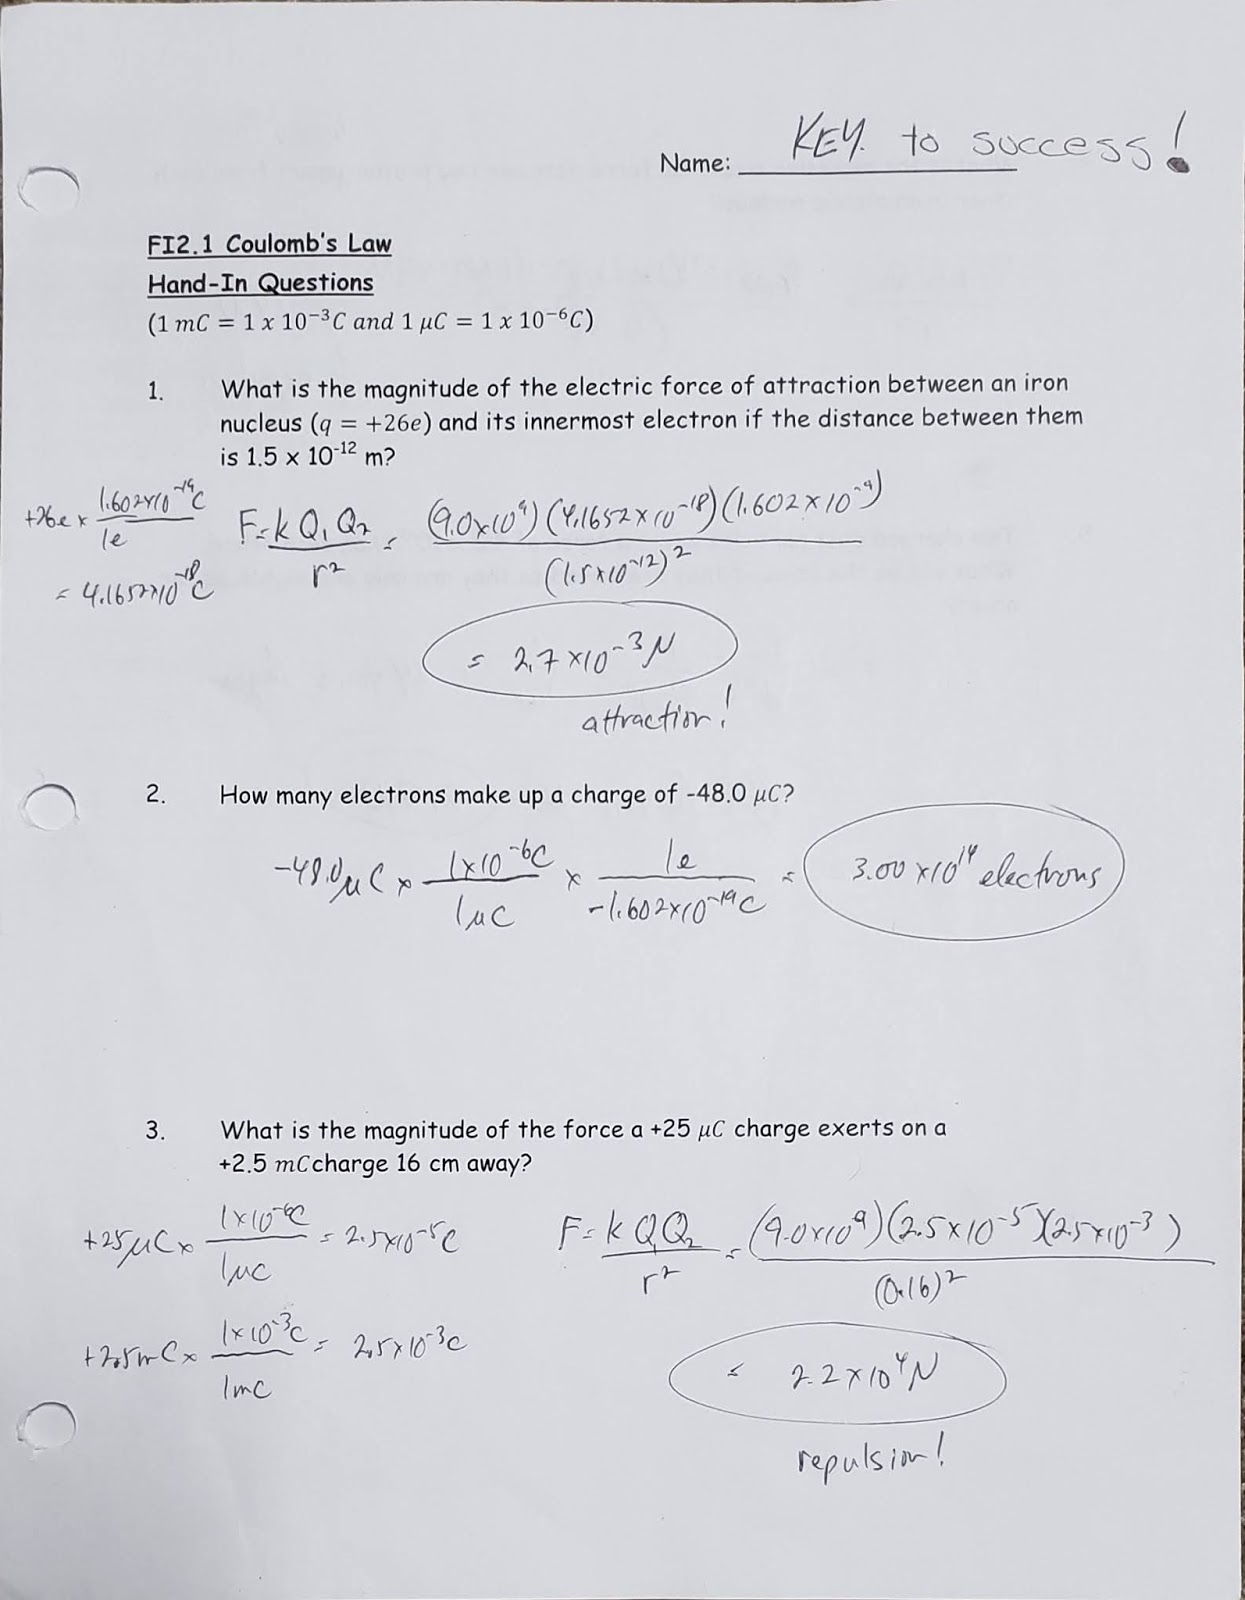 KEY to success!
Name:
FI2.1 Coulomb's Law
Hand-In Questions
(1 mC = 1 x 10⁻³C and 1 μC = 1 x 10⁻⁶C)
1. What is the magnitude of the electric force of attraction between an iron
nucleus (q = +26e) and its innermost electron if the distance between them
is 1.5 x 10⁻¹² m?
+26e x 1.602x10⁻¹⁹C / 1e
= 4.1652x10⁻¹⁸C
F = k Q₁Q₂ / r² = (9.0x10⁹)(4.1652x10⁻¹⁸)(1.602x10⁻⁹) / (1.5x10⁻¹²)²
= 2.7x10⁻³N
attraction!
2. How many electrons make up a charge of -48.0 μC?
-48.0μC x 1x10⁻⁶C / 1μC x 1e / -1.602x10⁻¹⁹C = 3.00x10¹⁴ electrons
3. What is the magnitude of the force a +25 μC charge exerts on a
+2.5 mCcharge 16 cm away?
+25μC x 1x10⁻⁶C / 1μC = 2.5x10⁻⁵C
+2.5mC x 1x10⁻³C / 1mC = 2.5x10⁻³C
F = k Q₁Q₂ / r² = (9.0x10⁹)(2.5x10⁻⁵)(2.5x10⁻³) / (0.16)²
= 2.2x10⁴N
repulsion!